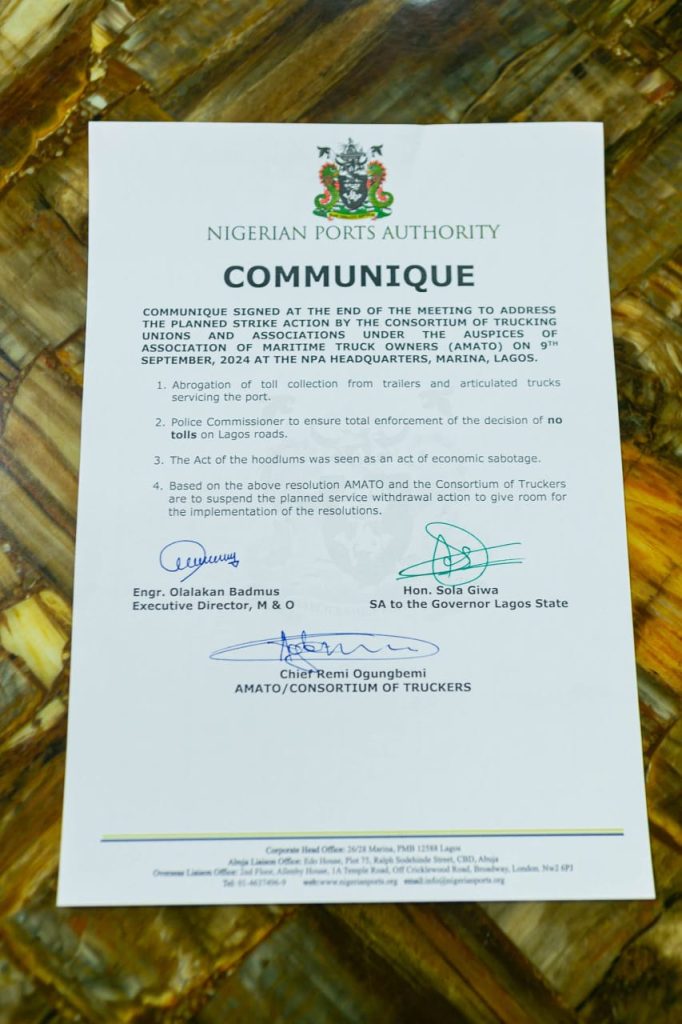 NIGERIAN PORTS AUTHORITY
COMMUNIQUE
COMMUNIQUE SIGNED AT THE END OF THE MEETING TO ADDRESS
THE PLANNED STRIKE ACTION BY THE CONSORTIUM OF TRUCKING
UNIONS AND ASSOCIATIONS UNDER THE AUSPICES OF
ASSOCIATION OF MARITIME TRUCK OWNERS (AMATO) ON 9TH
SEPTEMBER, 2024 AT THE NPA HEADQUARTERS, MARINA, LAGOS.
1. Abrogation of toll collection from trailers and articulated trucks
servicing the port.
2. Police Commissioner to ensure total enforcement of the decision of no
tolls on Lagos roads.
3. The Act of the hoodlums was seen as an act of economic sabotage.
4. Based on the above resolution AMATO and the Consortium of Truckers
are to suspend the planned service withdrawal action to give room for
the implementation of the resolutions.
Engr. Olalakan Badmus
Executive Director, M & O
Hon. Sola Giwa
SA to the Governor Lagos State
Chief Remi Ogungbemi
AMATO/CONSORTIUM OF TRUCKERS
Corporate Head Office: 26/28 Marina, PMB 12588 Lagos
Abuja Liaison Office: Edo House, Plot 75, Ralph Sodehinde Street, CBD, Abuja
Overseas Liaison Office: 2nd Floor, Allenby House, 1A Temple Road, Off Cricklewood Road, Broadway, London, Nw2 6PJ
Tel: 01-4637496-9 web:www.nigerianports.org email:info@nigerianports.org